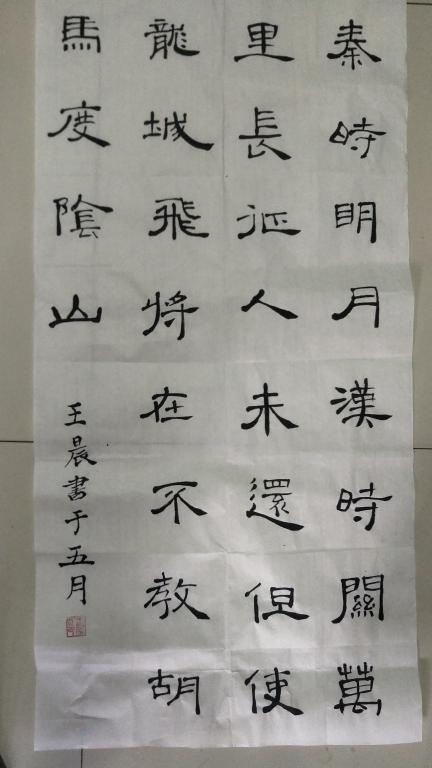 秦時明月漢時關萬
里長征人未還但使
龍城飛將在不教胡
馬度陰山
王晨書于五月